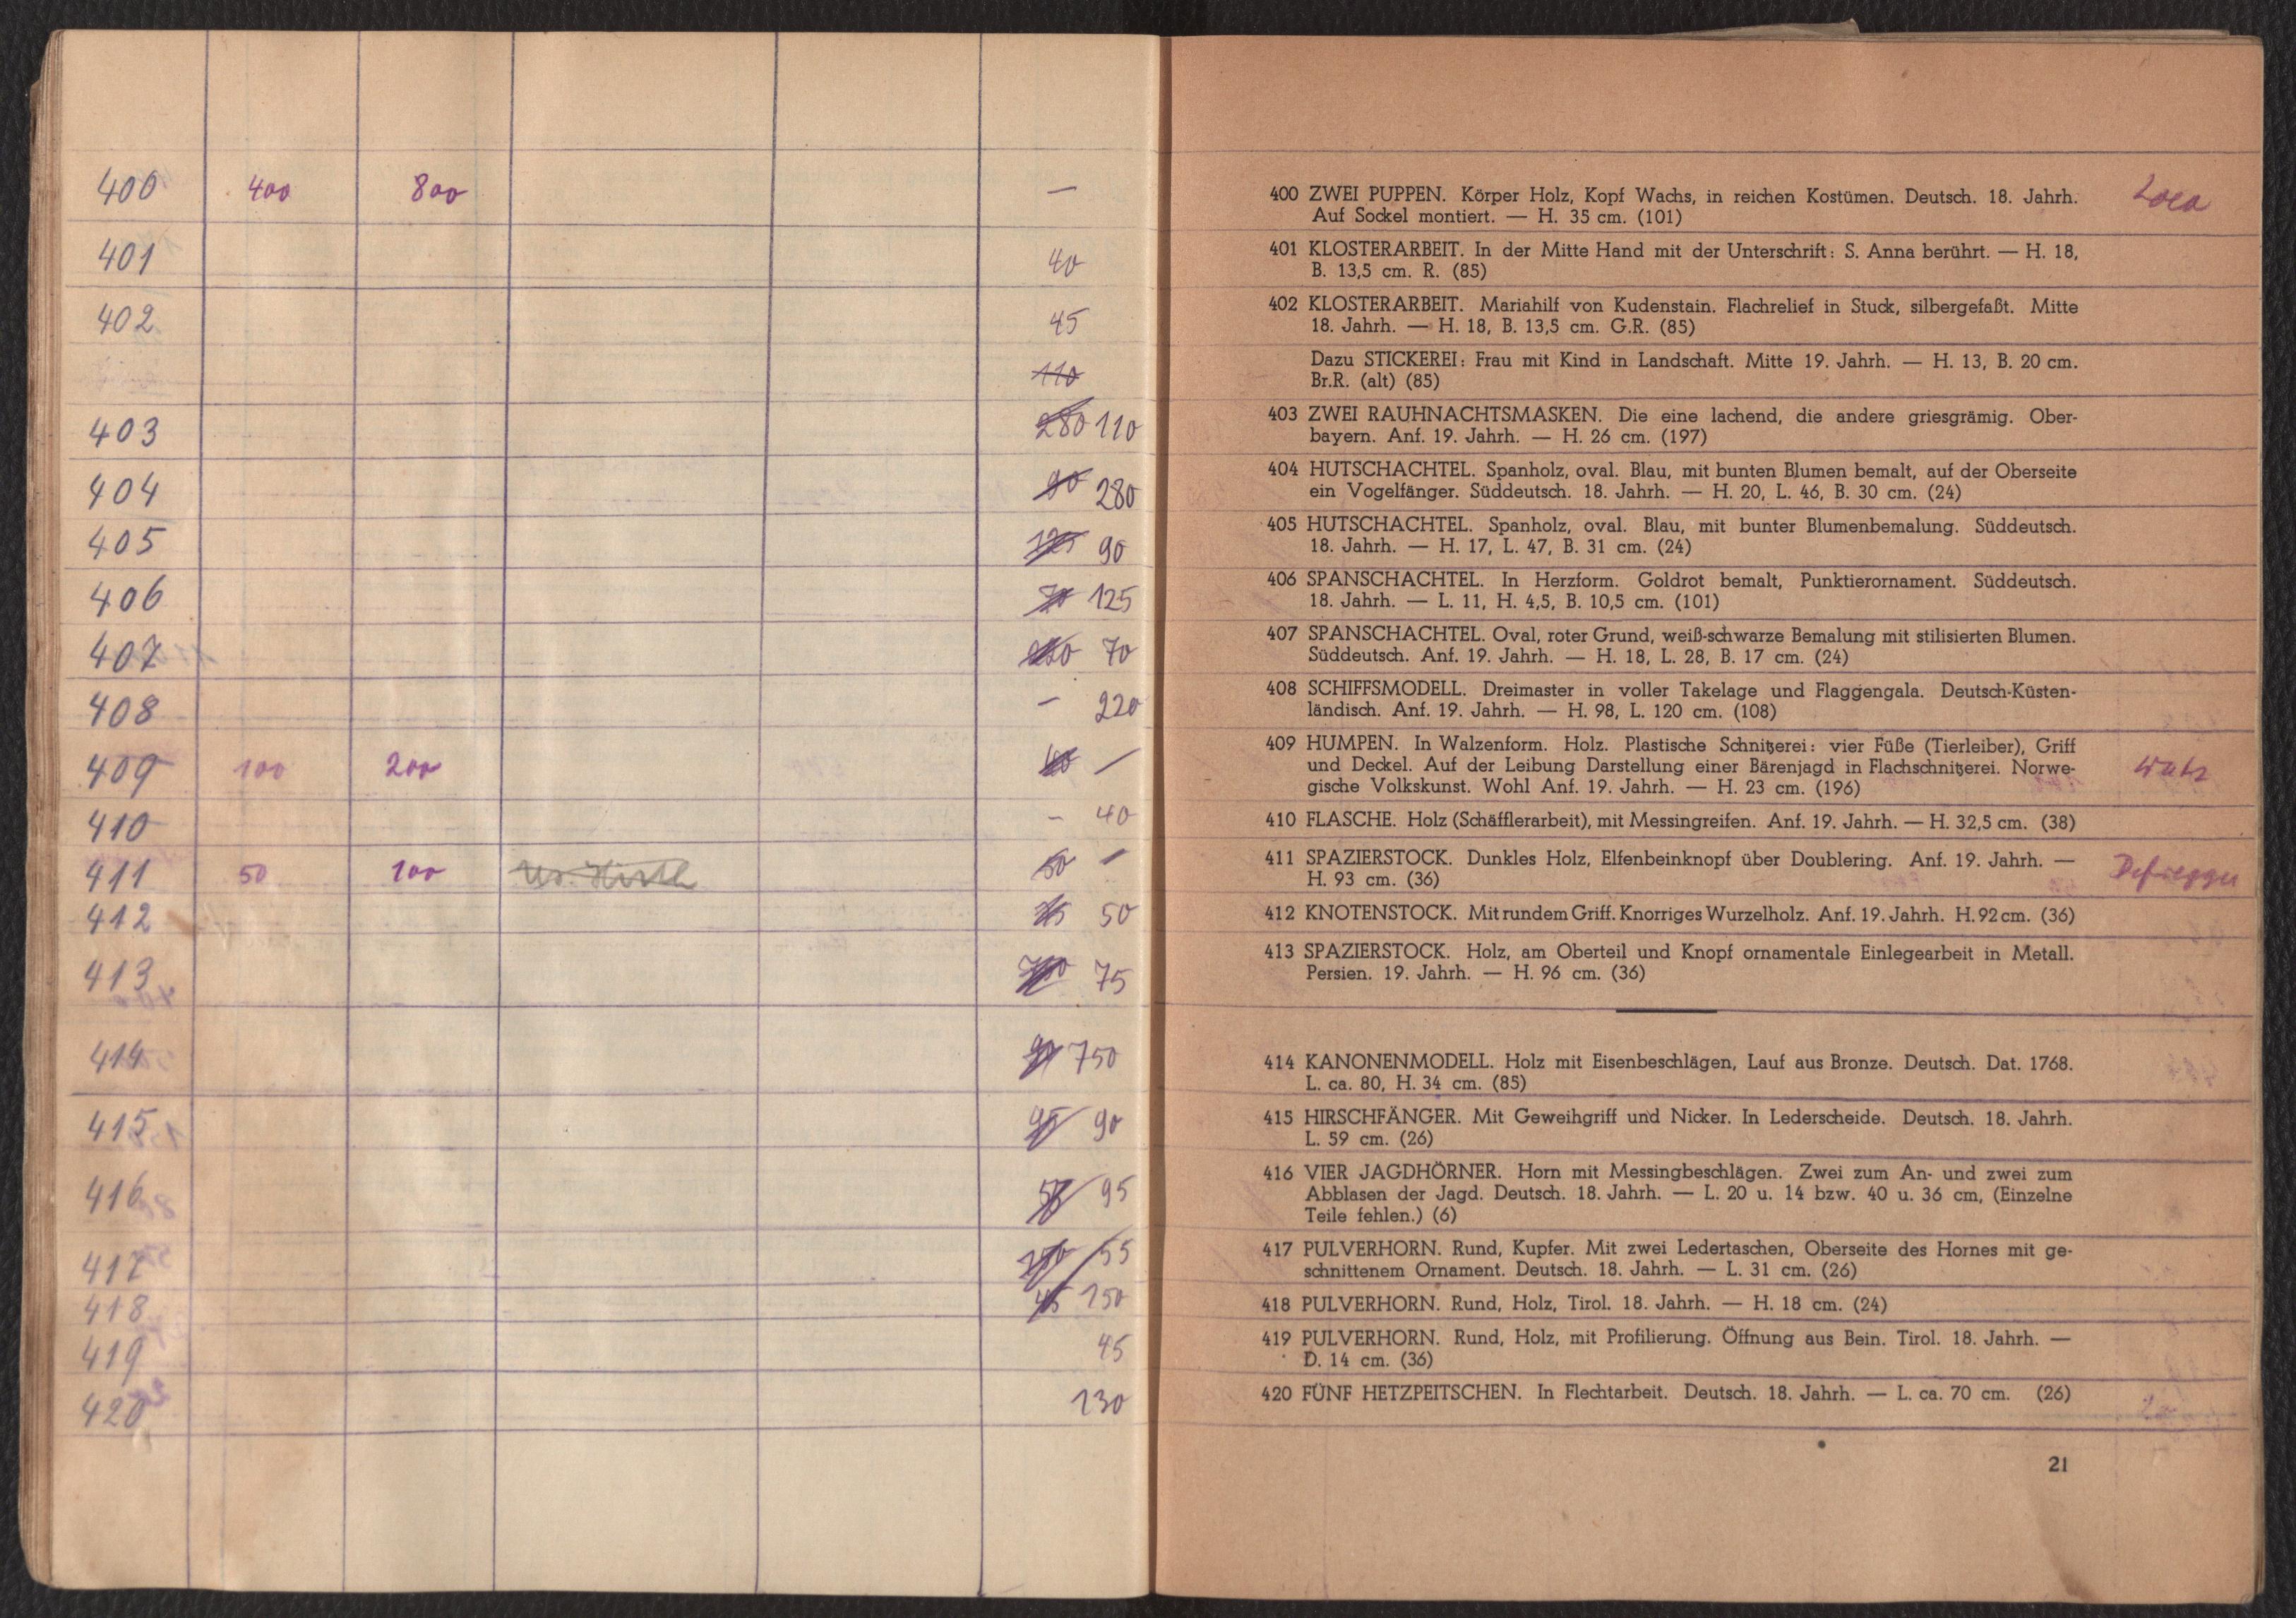 400 400 800 —
401 40
402 45
110
403 280 110
404 90 280
405 125 90
406 70 125
407 70
408 - 220
409 100 200 —
410 - 40
411 50 100 50 —
412 75 50
413 75
414 750
415 95 90
416 95
417 55
418 45 150
419 45
420 130
400 ZWEI PUPPEN. Körper Holz, Kopf Wachs, in reichen Kostümen. Deutsch. 18. Jahrh.
Auf Sockel montiert. — H. 35 cm. (101)
401 KLOSTERARBEIT. In der Mitte Hand mit der Unterschrift: S. Anna berührt. — H. 18,
B. 13,5 cm. R. (85)
402 KLOSTERARBEIT. Mariahilf von Kudenstain. Flachrelief in Stuck, silbergefaßt. Mitte
18. Jahrh. — H. 18, B. 13,5 cm. G.R. (85)
Dazu STICKEREI: Frau mit Kind in Landschaft. Mitte 19. Jahrh. — H. 13, B. 20 cm.
Br.R. (alt) (85)
403 ZWEI RAUHNACHTSMASKEN. Die eine lachend, die andere griesgrämig. Ober-
bayern. Anf. 19. Jahrh. — H. 26 cm. (197)
404 HUTSCHACHTEL. Spanholz, oval. Blau, mit bunten Blumen bemalt, auf der Oberseite
ein Vogelfänger. Süddeutsch. 18. Jahrh. — H. 20, L. 46, B. 30 cm. (24)
405 HUTSCHACHTEL. Spanholz, oval. Blau, mit bunter Blumenbemalung. Süddeutsch.
18. Jahrh. — H. 17, L. 47, B. 31 cm. (24)
406 SPANSCHACHTEL. In Herzform. Goldrot bemalt, Punktierornament. Süddeutsch.
18. Jahrh. — L. 11, H. 4,5, B. 10,5 cm. (101)
407 SPANSCHACHTEL. Oval, roter Grund, weiß-schwarze Bemalung mit stilisierten Blumen.
Süddeutsch. Anf. 19. Jahrh. — H. 18, L. 28, B. 17 cm. (24)
408 SCHIFFSMODELL. Dreimaster in voller Takelage und Flaggengala. Deutsch-Küsten-
ländisch. Anf. 19. Jahrh. — H. 98, L. 120 cm. (108)
409 HUMPEN. In Walzenform. Holz. Plastische Schnitzerei: vier Füße (Tierleiber), Griff
und Deckel. Auf der Leibung Darstellung einer Bärenjagd in Flachschnitzerei. Norwe-
gische Volkskunst. Wohl Anf. 19. Jahrh. — H. 23 cm. (196)
410 FLASCHE. Holz (Schäfflerarbeit), mit Messingreifen. Anf. 19. Jahrh. — H. 32,5 cm. (38)
411 SPAZIERSTOCK. Dunkles Holz, Elfenbeinknopf über Doublering. Anf. 19. Jahrh. — Defregger
H. 93 cm. (36)
412 KNOTENSTOCK. Mit rundem Griff. Knorriges Wurzelholz. Anf. 19. Jahrh. H. 92 cm. (36)
413 SPAZIERSTOCK. Holz, am Oberteil und Knopf ornamentale Einlegearbeit in Metall.
Persien. 19. Jahrh. — H. 96 cm. (36)
414 KANONENMODELL. Holz mit Eisenbeschlägen, Lauf aus Bronze. Deutsch. Dat. 1768.
L. ca. 80, H. 34 cm. (85)
415 HIRSCHFÄNGER. Mit Geweihgriff und Nicker. In Lederscheide. Deutsch. 18. Jahrh.
L. 59 cm. (26)
416 VIER JAGDHÖRNER. Horn mit Messingbeschlägen. Zwei zum An- und zwei zum
Abblasen der Jagd. Deutsch. 18. Jahrh. — L. 20 u. 14 bzw. 40 u. 36 cm, (Einzelne
Teile fehlen.) (6)
417 PULVERHORN. Rund, Kupfer. Mit zwei Ledertaschen, Oberseite des Hornes mit ge-
schnittenem Ornament. Deutsch. 18. Jahrh. — L. 31 cm. (26)
418 PULVERHORN. Rund, Holz, Tirol. 18. Jahrh. — H. 18 cm. (24)
419 PULVERHORN. Rund, Holz, mit Profilierung. Öffnung aus Bein. Tirol. 18. Jahrh. —
D. 14 cm. (36)
420 FÜNF HETZPEITSCHEN. In Flechtarbeit. Deutsch. 18. Jahrh. — L. ca. 70 cm. (26)
21